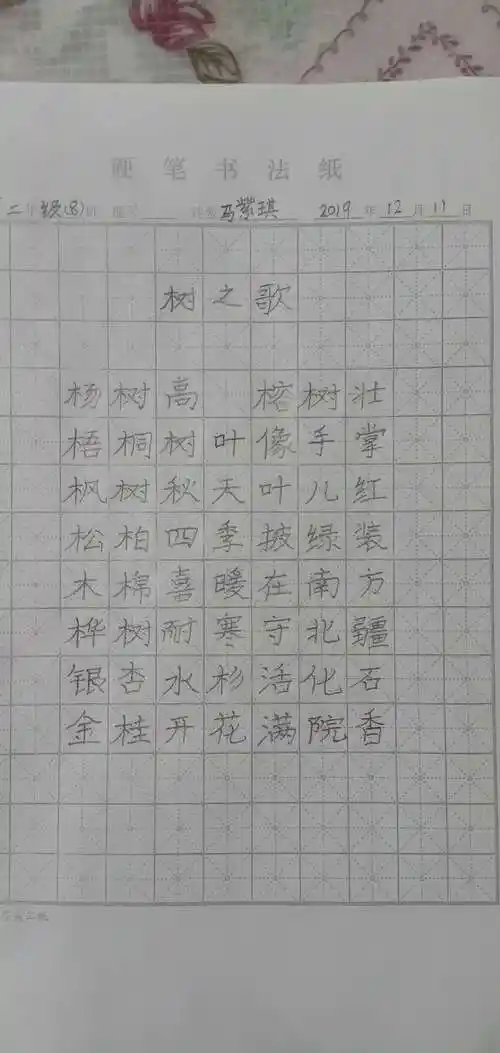 硬笔书法纸
二年级(8)班 姓名 马紫琪 2019年12月11日
树之歌
杨树高 榕树壮
梧桐树叶像手掌
枫树秋天叶儿红
松柏四季披绿装
木棉喜暖在南方
桦树耐寒守北疆
银杏水杉活化石
金桂开花满院香